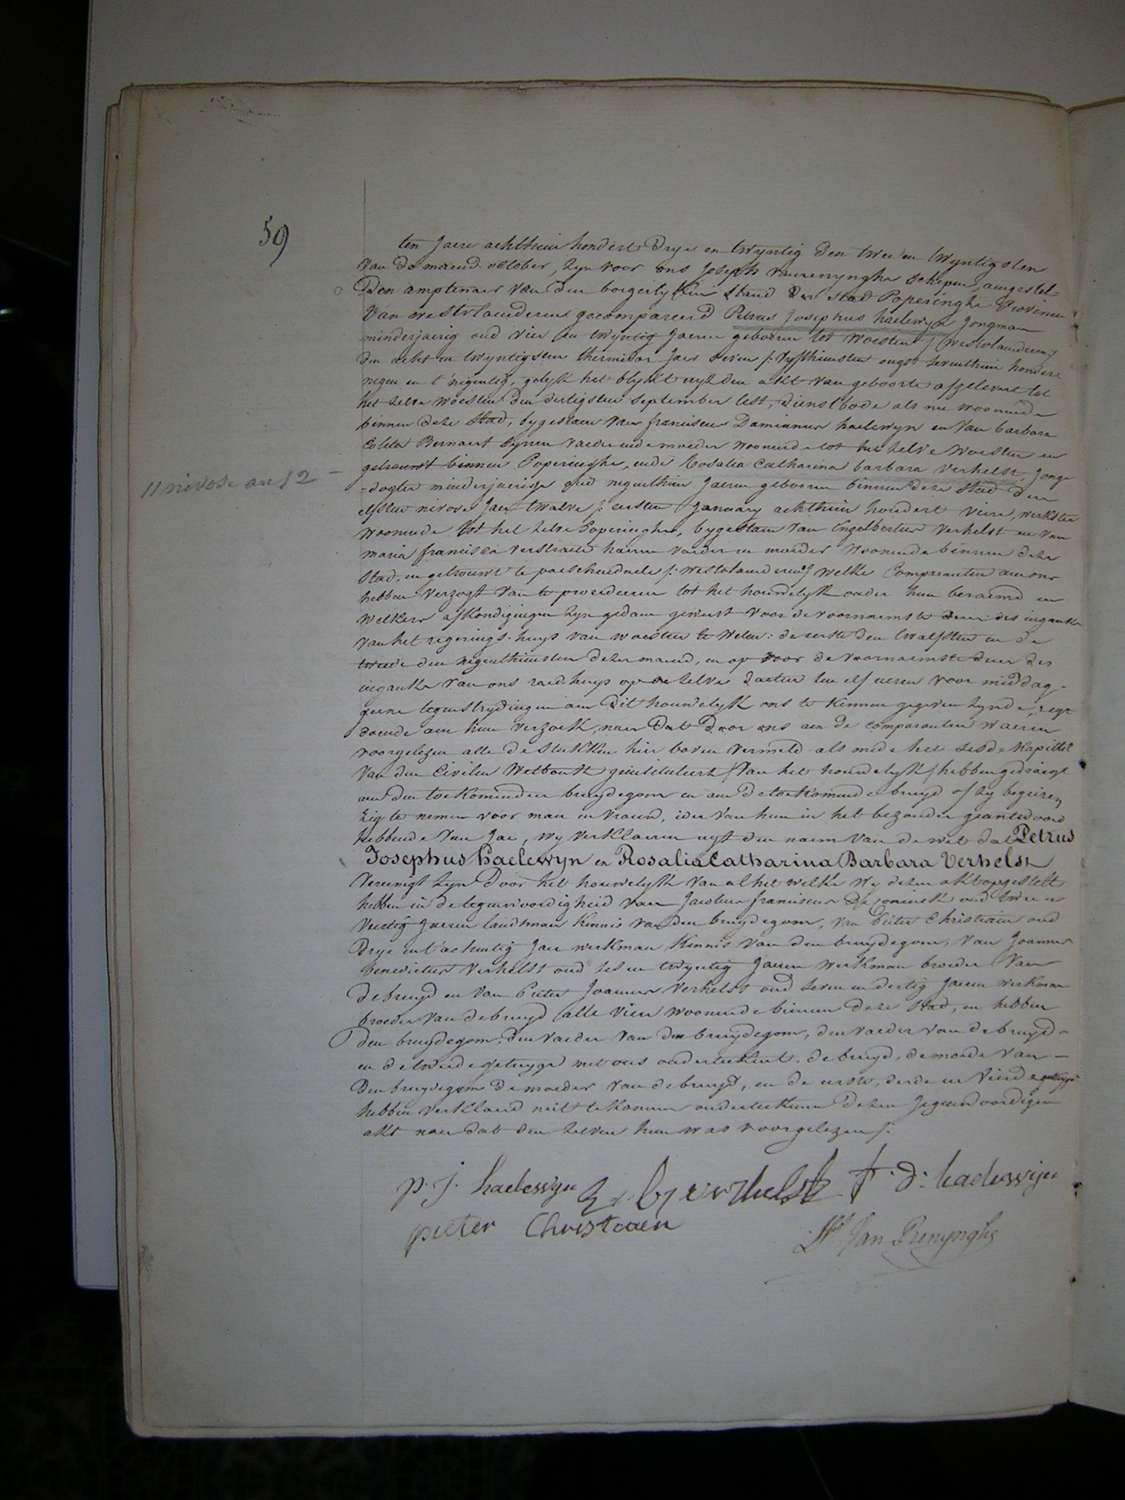 59
ten Jaere achthien hondert drye en twyntig den twee en twyntigsten
van de maend october, zyn voor ons Joseph vanrenynghe schepen, aengestel
den amptenaer van den borgerlyken stand der stad Poperinghe Provincie
van westvlaenderen gecompareerd Petrus Josephus haelewyn Jongman
minderjaerig oud vier en twyntig Jaeren geboren tot Woesten /:westvlaenderen:/
den acht en twyntigsten thermidor Jaer seven /: vyfthiensten ougst seventhien hondert
negen en t'negentig, gelyk het blykt uyt den akt van geboorte afgelevert tot
het zelve Woesten den dertigsten september lest, dienstbode als nu woonende
binnen deze stad, bygestaen van franciscus Damianus haelewyn en van barbara
Coleta Bernaert zynen vader ende moeder woonende tot het zelve Woesten en
getrouwt binnen Poperinghe, ende Rosalia Catharina barbara Verhelst Jonge
11 nivose an 12 -
-dogter minderjaerige oud negenthien Jaeren geboren binnen deze stad den
elfsten nivose Jaer twalve /: eersten January achthien hondert vier, werkster
woonende tot het zelve Poperinghe, bygestaen van Engelbertus Verhelst en van
maria francisca Verstraete haeren vader en moeder woonende binnen deze
stad, en getrouwt te passchendaele /: westvlaenderen:/ welke Comparanten aen ons
hebben verzogt van te procederen tot het houwelyk onder hun beraemd en
welkers afkondigingen zyn gedaen geweest voor de voornaemste deur des ingank
van het regerings-huys van woesten te weten: de eerste den twalfsten en de
tweede den negenthiensten dezer maend, en op voor de voornaemste deur des
ingank van ons raedhuys op de zelve daeten ten elf ueren voor middag,
geene tegenstrydingen aen dit houwelyk ons te kennen gegeven zynde, regt
doende aen hun verzoek, naer dat door ons aen de comparanten waeren
voorgelezen alle de stukken hier boven vermeld als mede het sesde kapittel
van den Civilen Wetboek geintituleert /van het houwelyk/ hebben gevraegt
aen den toekomenden bruydegom en aen de toekomende bruyd of zy begeiren
zig te nemen voor man en vrouw, ider van hun in het bezonder geantwoord
hebbende van Jae, wy verklaeren uyt den naem van de wet dat Petrus
Josephus haelewyn en Rosalia Catharina Barbara Verhelst
vereenigt zyn door het houwelyk van al het welke wy dezen akt opgestelt
hebben in de tegenwoordigheid van Jacobus franciscus De Coninck oud twee en
veertig Jaeren landsman kennis van den bruydegom, van Pieter Christiaen oud
drye en t'achentig Jaer werkman kennis van den bruydegom, van Joannes
benedictus Verhelst oud ses en twyntig Jaeren werkman broeder van
de bruyd en van Pieter Joannes Verhelst oud seven en dertig Jaeren werkman
broeder van de bruyd alle vier woonende binnen deze stad, en hebben
den bruydegom, den vaeder van den bruydegom, den vaeder van de bruyd
en de tweede getuyge met ons onderteekent. de bruyd, de moeder van
den bruydegom de moeder van de bruyd, en de eerste, derde en vierde getuyge
hebben verklaerd niet te konnen onderteekenen dezen Jegenwoordigen
akt naer dat den zelven hun was voorgelezen /.
p. j. haelewyn E verhelst f. d. haelewijn
pieter Christiaen
Jh Van Renynghe